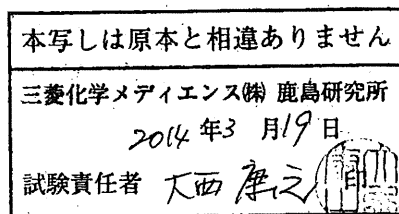 本写しは原本と相違ありません
三菱化学メディエンス㈱ 鹿島研究所
2014 年 3 月 19 日
試験責任者 大西 康之 印